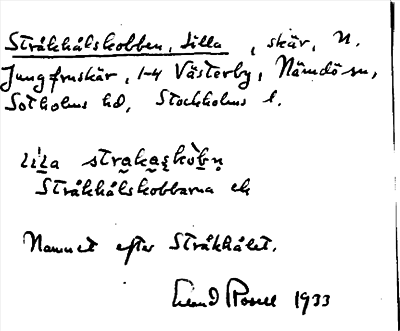 Stråkhålskobben, Lilla, skär, N.
Jungfruskär, 1-4 Västerby, Nämdö sn,
Sotholms hd, Stockholms l.
lila strakaskòbn̥
Stråkhålskobbarna ek
Namnet efter Stråkhålet.
1933